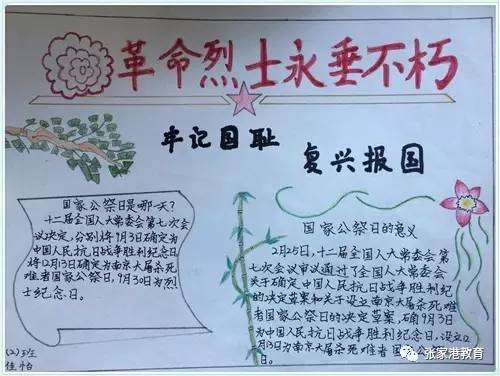 革命烈士永垂不朽
牢记国耻
复兴报国
国家公祭日是哪一天?
十二届全国人大常委会第七次会
议决定,分别将9月3日确定为
中国人民抗日战争胜利纪念日
将12月13日确定为南京大屠杀死
难者国家公祭日,9月30日为烈
士纪念日。
国家公祭日的意义
2月25日,十二届全国人大常委会
第七次会议审议通过了全国人大常委会
关于确定中国人民抗日战争胜利纪
的决定草案和关于设立南京大屠杀死难
者国家公祭日的决定草案,确9月3日
为中国人民抗日战争胜利纪念日,设立12
月13日为南京大屠杀死难者 国家公
(2)班
佳怡
张家港教育